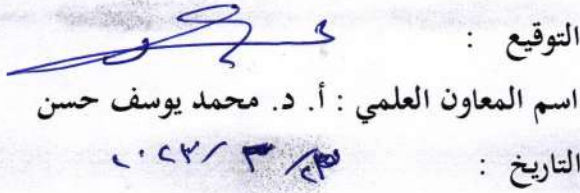 التوقيع :
اسم المعاون العلمي : أ. د. محمد يوسف حسن
التاريخ : / ٣ / ٢٠٢٣